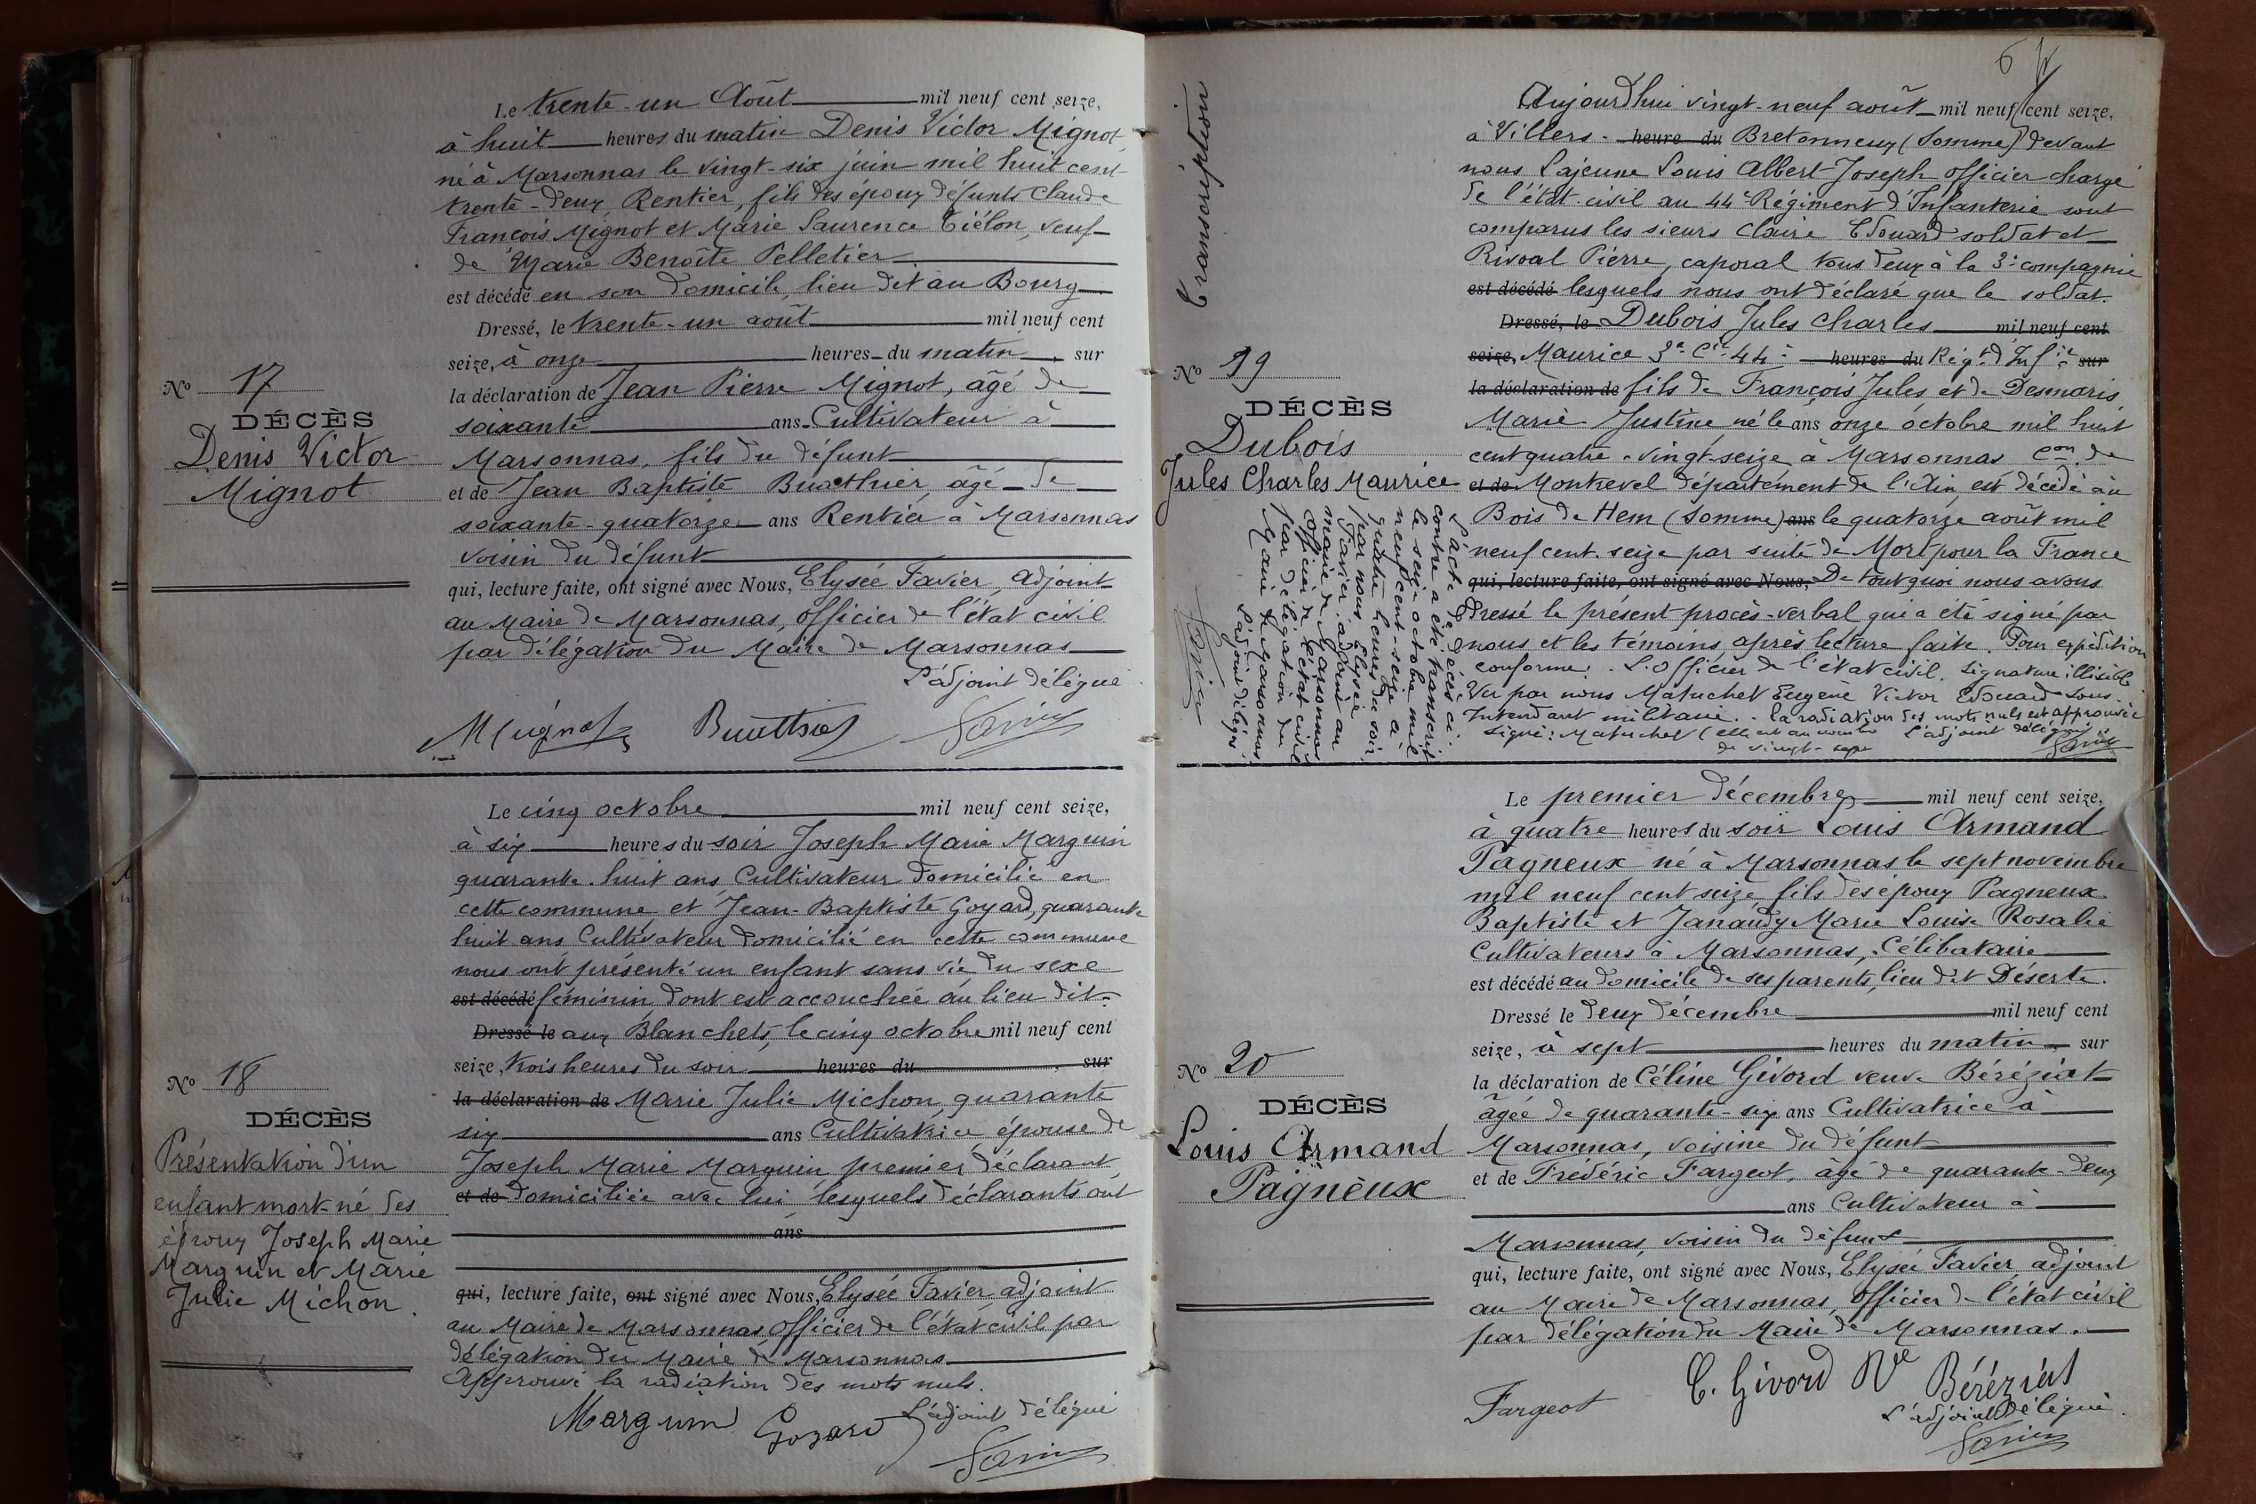 Le trente-un Août mil neuf cent seize,
à huit heures du matin Denis Victor Mignot,
né à Marsonnas le vingt-six juin mil huit cent
trente-deux Rentier, fils des époux défunts Claude
François Mignot et Marie Laurence Tiélon, veuf
de Marie Benoîte Pelletier
est décédé en son domicile, lieu dit au Bourg
Dressé, le trente-un août mil neuf cent
seize, à onze heures du matin, sur
la déclaration de Jean Pierre Mignot, âgé de
soixante ans Cultivateur à
Marsonnas, fils du défunt
et de Jean Baptiste Buathier, âgé de
soixante-quatorze ans Rentier à Marsonnas
voisin du défunt
qui, lecture faite, ont signé avec Nous, Elysée Favier, adjoint
au Maire de Marsonnas, officier de l'état civil
par délégation du Maire de Marsonnas
L'adjoint délégué
Mignot Buathier Favier
No 17
DÉCÈS
Denis Victor
Mignot
Le cinq octobre mil neuf cent seize,
à six heures du soir Joseph Marie Marguin
quarante-huit ans, Cultivateur domicilié en
cette commune, et Jean-Baptiste Goyard, quarante
huit ans, Cultivateur domicilié en cette commune
nous ont présenté un enfant sans vie du sexe
est décédé féminin, dont est accouchée au lieu dit
Dressé le aux Blanchets, le cinq octobre mil neuf cent
seize, trois heures du soir heures du, sur
la déclaration de Marie Julie Michon, quarante
six ans Cultivatrice épouse de
Joseph Marie Marguin, premier déclarant,
et de domiciliée avec lui, lesquels déclarants ont
ans
qui, lecture faite, ont signé avec Nous, Elysée Favier, adjoint
au Maire de Marsonnas officier de l'état civil par
délégation du Maire de Marsonnas
Approuvé la radiation des mots nuls.
L'adjoint délégué
Marguin Goyard Favier
No 18
DÉCÈS
Présentation d'un
enfant mort-né des
époux Joseph Marie
Marguin et Marie
Julie Michon.
6
Transcription
Aujourd'hui vingt-neuf août mil neuf cent seize,
à Villers- heure du Bretonneux (Somme) devant
nous Lajeune Louis Albert Joseph officier chargé
de l'état-civil au 44e Régiment d'Infanterie sont
comparus les sieurs Claire Edouard soldat et
Rivoal Pierre, caporal tous deux à la 3e compagnie
est décédé lesquels nous ont déclaré que le soldat.
Dressé, le Dubois Jules Charles mil neuf cent
seize, Maurice 3e Cie 44e heures du Régt d'Infie sur
la déclaration de fils de François Jules et de Desmaris
Marie Justine né le ans onze octobre mil huit
cent quatre-vingt-seize à Marsonnas con de
et de Montrevel département de l'Ain, est décédé au
Bois de Hem (Somme) ans le quatorze août mil
neuf cent seize par suite de Mort pour la France
qui, lecture faite, ont signé avec Nous, De tout quoi nous avons
dressé le présent procès-verbal qui a été signé par
nous et les témoins après lecture faite. Pour expédition
conforme. L'Officier de l'état civil. Signature illisible.
Vu par nous Matuchet Eugène Victor Edouard Sous
Intendant militaire. la radiation des mots nuls est approuvée
signé: Matuchet (elle est au nombre L'adjoint délégué
de vingt-sept Favier
No 19
DÉCÈS
Dubois
Jules Charles Maurice
L'acte de décès ci-
contre a été transcrit
le seize octobre mil
neuf cent-seize à
quatre heures du soir
par nous Elysée
Favier, adjoint au
maire de Marsonnas
officier de l'état civil
par délégation du
Maire de Marsonnas
L'adjoint délégué
Favier
Le premier décembre mil neuf cent seize,
à quatre heures du soir Louis Armand
Pagneux né à Marsonnas le sept novembre
mil neuf cent seize, fils des époux Pagneux
Baptiste et Janaudy Marie Louise Rosalie
Cultivateurs à Marsonnas, Célibataire
est décédé au domicile de ses parents, lieu dit Déserte.
Dressé le deux décembre mil neuf cent
seize, à sept heures du matin, sur
la déclaration de Céline Givord veuve Béréziat
âgée de quarante-six ans Cultivatrice à
Marsonnas, voisine du défunt
et de Frédéric Fargeot, âgé de quarante-deux
ans Cultivateur à
Marsonnas, voisin du défunt
qui, lecture faite, ont signé avec Nous, Elysée Favier adjoint
au Maire de Marsonnas, officier de l'état civil
par délégation du Maire de Marsonnas.
Fargeot C. Givord Ve Béréziat
L'adjoint délégué
Favier
No 20
DÉCÈS
Louis Armand
Pagneux